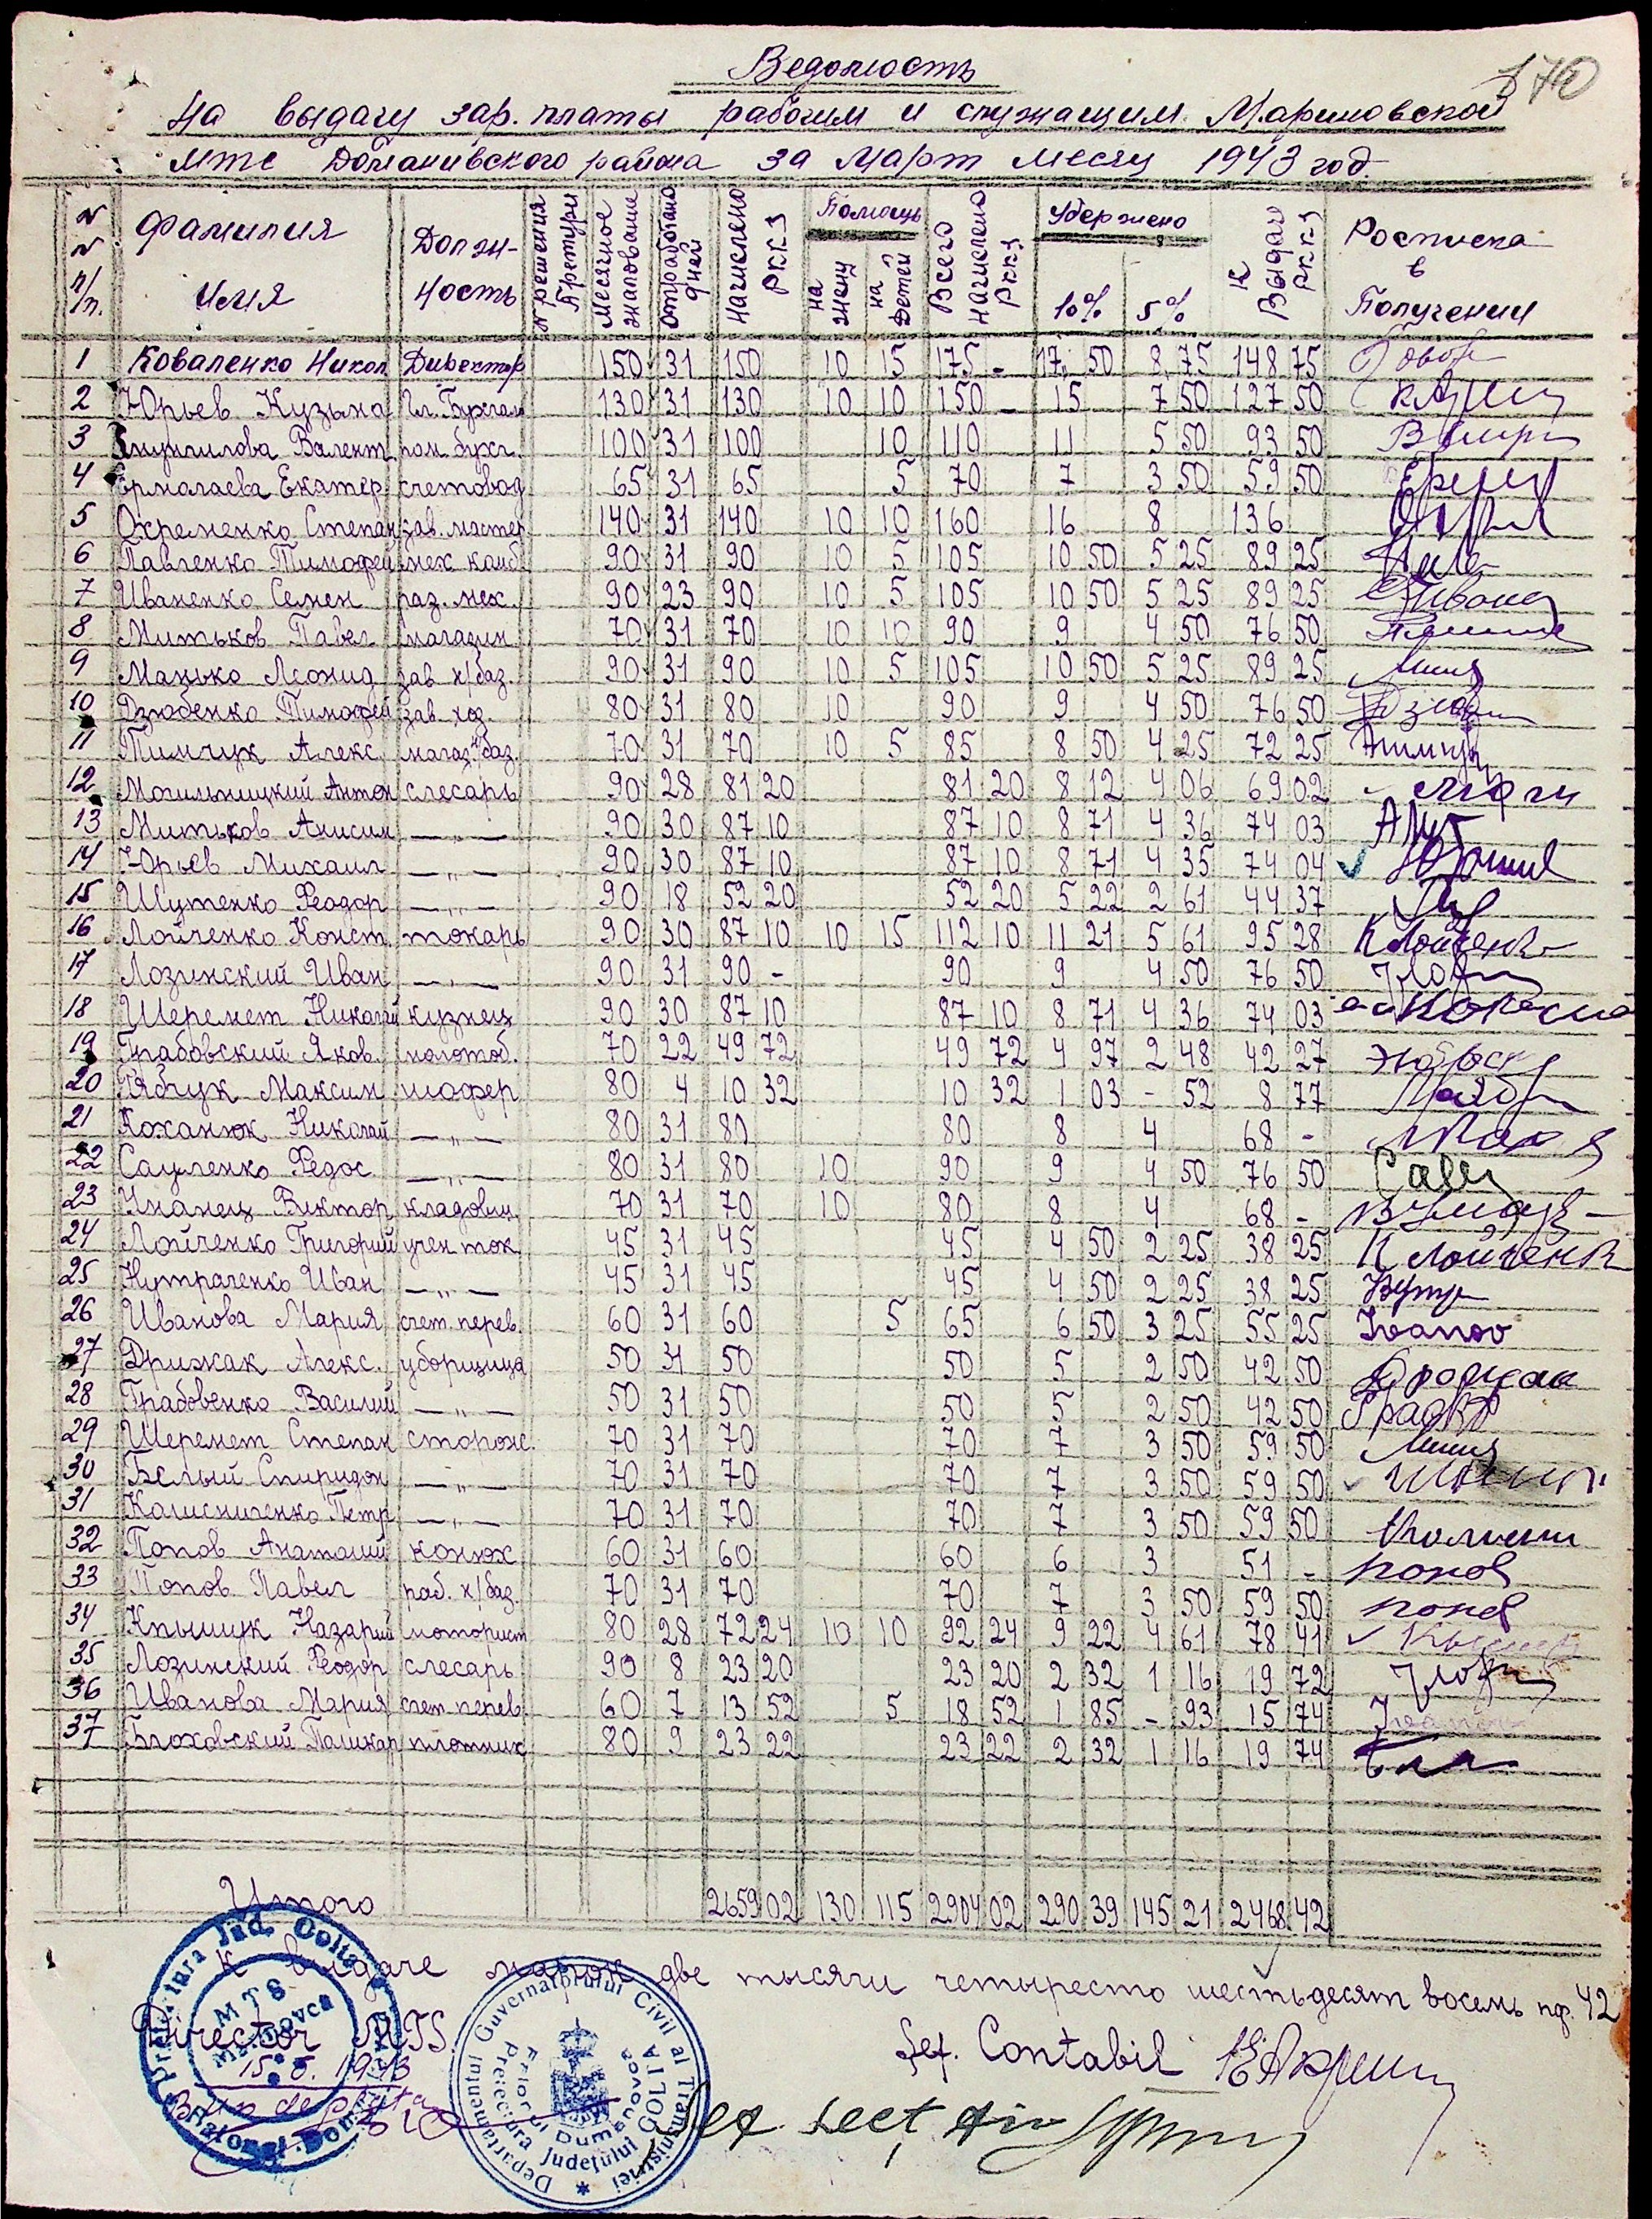 170
Ведомость
На выдачу зар. платы рабочим и служащим Мариновской
мтс Доманивского района за Март месяц 1943 год.
N N п/п. Фамилия Имя Должность N решения Претури Месячное жалование Отработано дней Начислено РККЗ Помощь на жену на детей Всего начислено РККЗ Удержено 10% 5% К Выдаче РККЗ Росписка в Получении
1 Коваленко Никол Директор 150 31 150 10 15 175 - 17 50 8 75 148 75
2 Юрьев Кузьма Гл. Бухгал 130 31 130 10 10 150 - 15 7 50 127 50
3 Валент пом. бухг. 100 31 100 10 110 11 5 50 93 50
4 Ермолаева Екатер. счетовод 65 31 65 5 70 7 3 50 59 50
5 Охременко Степан зав. мастер 140 31 140 10 10 160 16 8 136
6 Павленко Тимофей мех комб. 90 31 90 10 5 105 10 50 5 25 89 25
7 Иваненко Семен раз. мех. 90 23 90 10 5 105 10 50 5 25 89 25
8 Митьков Павел магазин 70 31 70 10 10 90 9 4 50 76 50
9 Манько Леонид зав н/баз. 90 31 90 10 5 105 10 50 5 25 89 25
10 Дзюбенко Тимофей зав. хоз. 80 31 80 10 90 9 4 50 76 50
11 Тимчук Алекс. магаз н/баз. 70 31 70 10 5 85 8 50 4 25 72 25
12 Могильницкий Антон слесарь 90 28 81 20 81 20 8 12 4 06 69 02
13 Митьков Анисим — „ — 90 30 87 10 87 10 8 71 4 36 74 03
14 Юрьев Михаил — „ — 90 30 87 10 87 10 8 71 4 35 74 04
15 Шутенко Феодор — „ — 90 18 52 20 52 20 5 22 2 61 44 37
16 Лойченко Конст. токарь 90 30 87 10 10 15 112 10 11 21 5 61 95 28 К Лойченко
17 Лозинский Иван — „ — 90 31 90 - 90 9 4 50 76 50
18 Шеремет Николай кузнец 90 30 87 10 87 10 8 71 4 36 74 03
19 Грабовский Яков. молотоб. 70 22 49 72 49 72 4 97 2 48 42 27
20 Рябчук Максим шофер 80 4 10 32 10 32 1 03 - 52 8 77
21 Коханюк Николай — „ — 80 31 80 80 8 4 68 -
22 Сауленко Федос — „ — 80 31 80 10 90 9 4 50 76 50
23 Унанец Виктор кладовщ. 70 31 70 10 80 8 4 68 -
24 Лойченко Григорий учен ток. 45 31 45 45 4 50 2 25 38 25
25 Иван — „ — 45 31 45 45 4 50 2 25 38 25
26 Иванова Мария счет. перев. 60 31 60 5 65 6 50 3 25 55 25 Ivanov
27 Дрижак Алекс. уборщица 50 31 50 50 5 2 50 42 50
28 Грабовенко Василий — „ — 50 31 50 50 5 2 50 42 50
29 Шеремет Степан сторож. 70 31 70 70 7 3 50 59 50
30 Белый Спиридон — „ — 70 31 70 70 7 3 50 59 50
31 Колисниченко Петр — „ — 70 31 70 70 7 3 50 59 50
32 Попов Анатолий конюх 60 31 60 60 6 3 51 - попов
33 Попов Павел раб. н/баз. 70 31 70 70 7 3 50 59 50 попов
34 Кпышук Назарий моторист 80 28 72 24 10 10 92 24 9 22 4 61 78 41
35 Лозинский Феодор слесарь 90 8 23 20 23 20 2 32 1 16 19 72
36 Иванова Мария счет. перев. 60 7 13 52 5 18 52 1 85 - 93 15 74
37 Блоховский Поликар плотник 80 9 23 22 23 22 2 32 1 16 19 74
Итого 2659 02 130 115 2904 02 290 39 145 21 2468 42
К выдаче марок две тысячи четыресто шестьдесят восемь пф. 42
Director MTS. Şef. Contabil
15. 5. 1943
Bun de plata
MTS Marinovca
Departamentul Guvernatorului Civil al Transnistriei
Prefectura Judeţului GOLTA